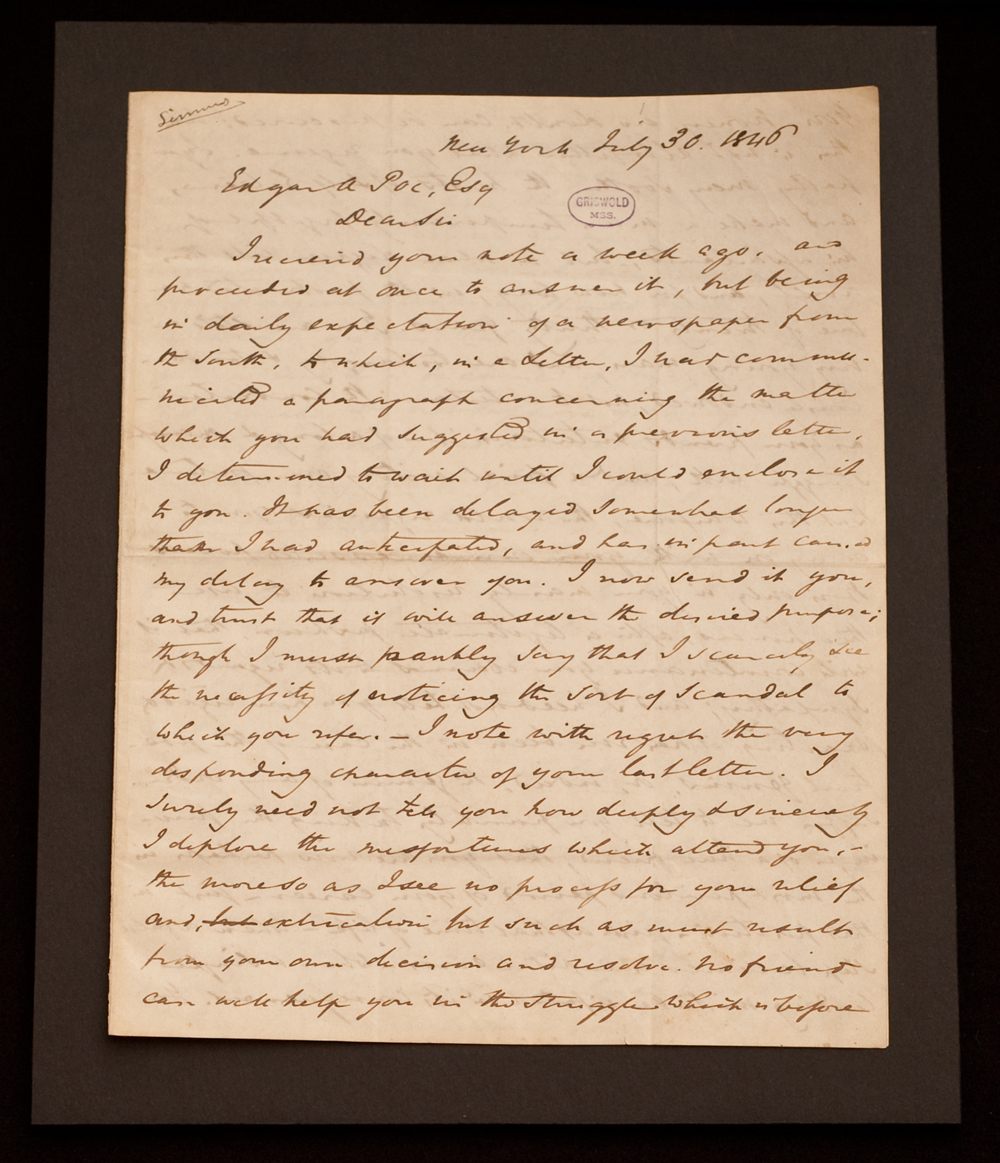 Simms
New York July 30. 1846
Edgar A Poe, Esq
GRISWOLD
MSS.
Dear Sir
I received your note a week ago, and
proceeded at once to answer it, but being
in daily expectation of a newspaper from
the South, to which, in a Letter, I had commu-
nicated a paragraph concerning the matter
which you had suggested in a previous letter,
I determined to wait until I could enclose it
to you. It has been delayed somewhat longer
than I had anticipated, and has in part caused
my delay to answer you. I now send it you,
and trust that it will answer the desired purpose;
though I must frankly say that I scarcely see
the necessity of noticing the sort of scandal to
which you refer. — I note with regret the very
desponding character of your last letter. I
surely need not tell you how deeply & sincerely
I deplore the misfortunes which attend you, —
the more so as I see no process for your relief
and, but extrication but such as must result
from your own decision and resolve. No friend
can well help you in the struggle which is before